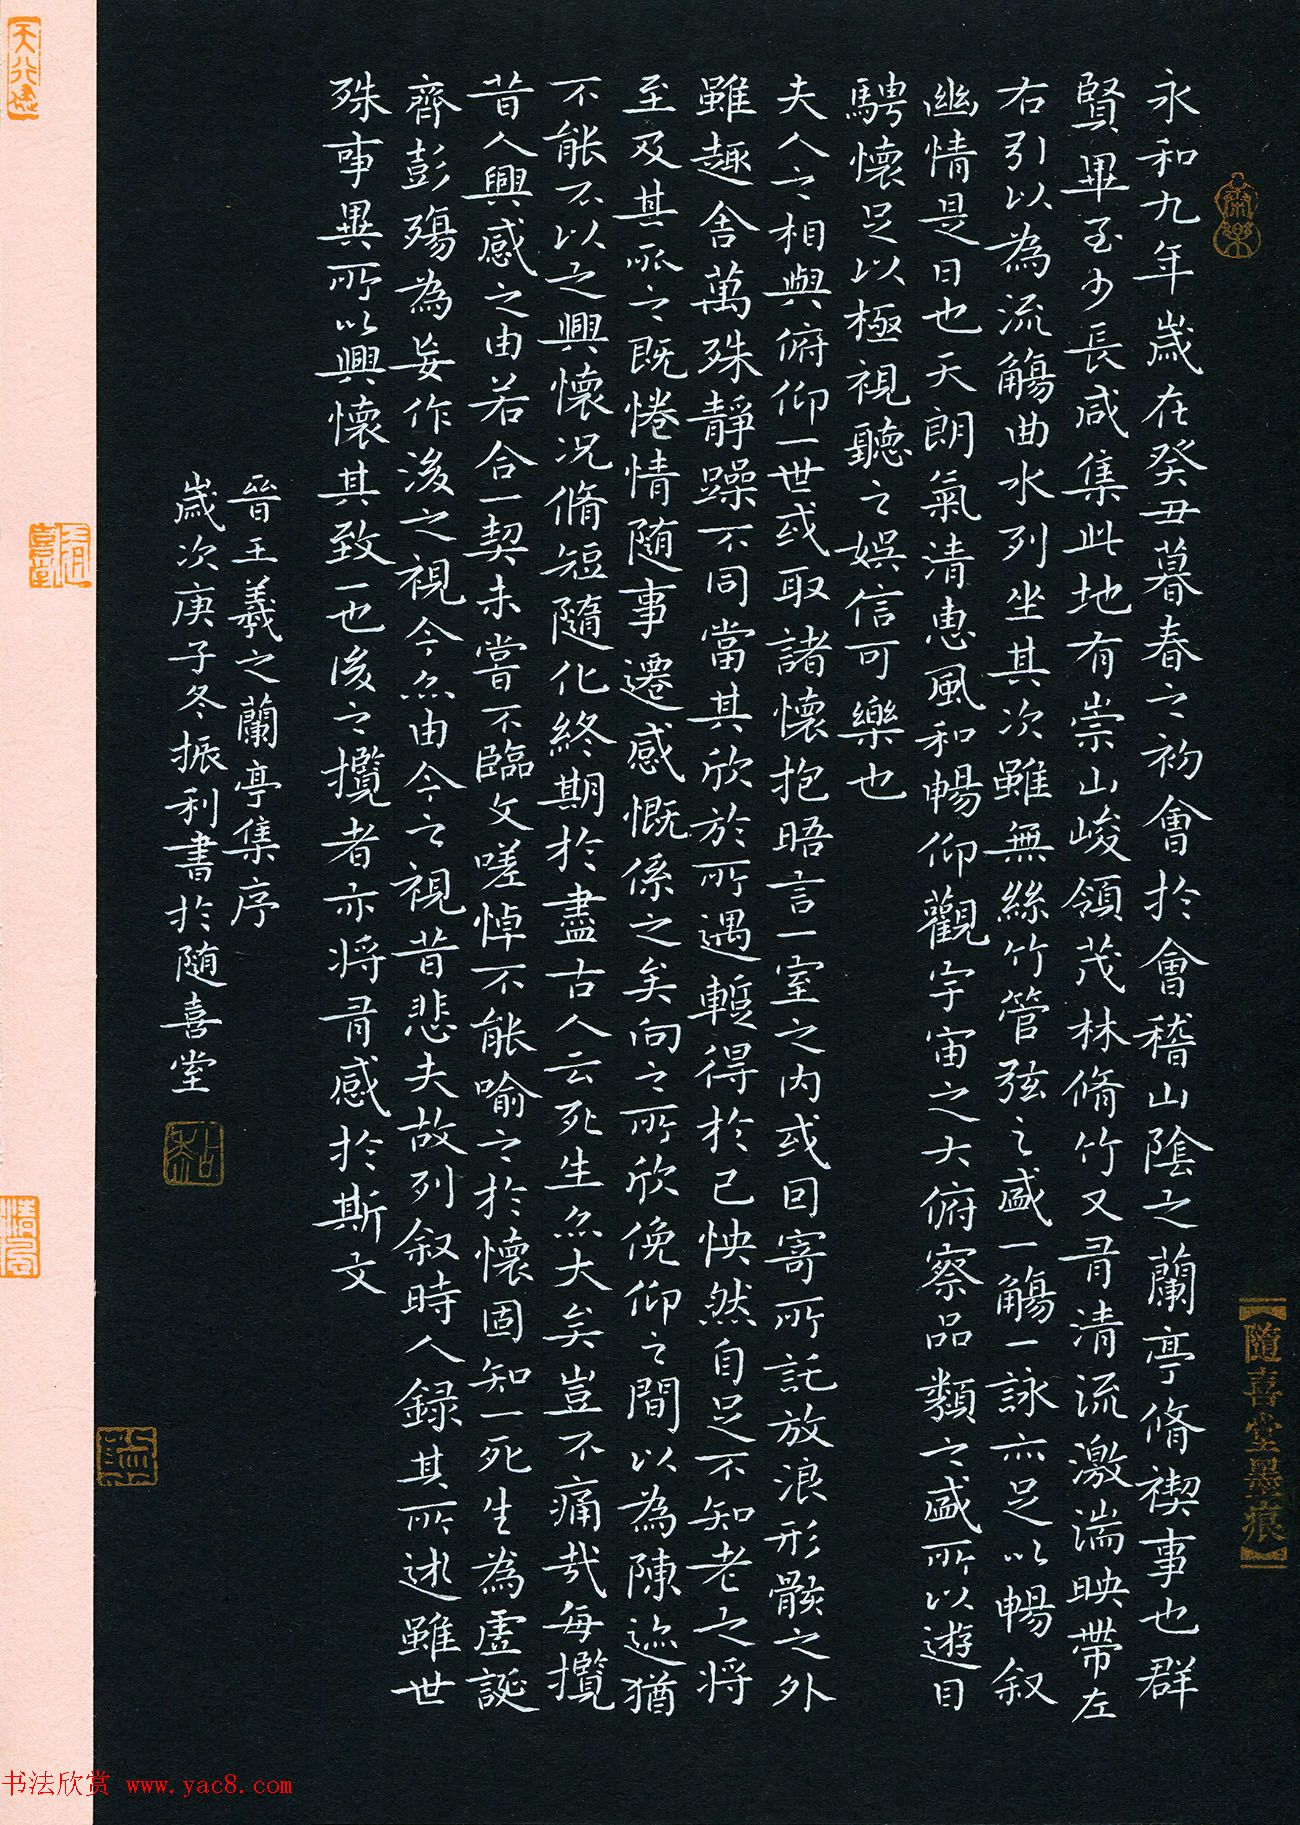 永和九年歲在癸丑暮春之初會於會稽山陰之蘭亭脩禊事也群
賢畢至少長咸集此地有崇山峻領茂林脩竹又有清流激湍映帶左
右引以為流觴曲水列坐其次雖無絲竹管弦之盛一觴一詠亦足以暢叙
幽情是日也天朗氣清惠風和暢仰觀宇宙之大俯察品類之盛所以遊目
騁懷足以極視聽之娛信可樂也
夫人之相與俯仰一世或取諸懷抱晤言一室之内或因寄所託放浪形骸之外
雖趣舍萬殊靜躁不同當其欣於所遇蹔得於己怏然自足不知老之將
至及其所之既惓情随事遷感慨係之矣向之所欣俛仰之間以為陳迹猶
不能不以之興懷況脩短隨化終期於盡古人云死生亦大矣豈不痛哉每攬
昔人興感之由若合一契未嘗不臨文嗟悼不能喻之於懷固知一死生為虛誕
齊彭殤為妄作後之視今亦由今之視昔悲夫故列叙時人録其所述雖世
殊事異所以興懷其致一也後之攬者亦將有感於斯文
晉王羲之蘭亭集序
歲次庚子冬振利書於随喜堂
【隨喜堂墨痕】
书法欣赏 www.yac8.com